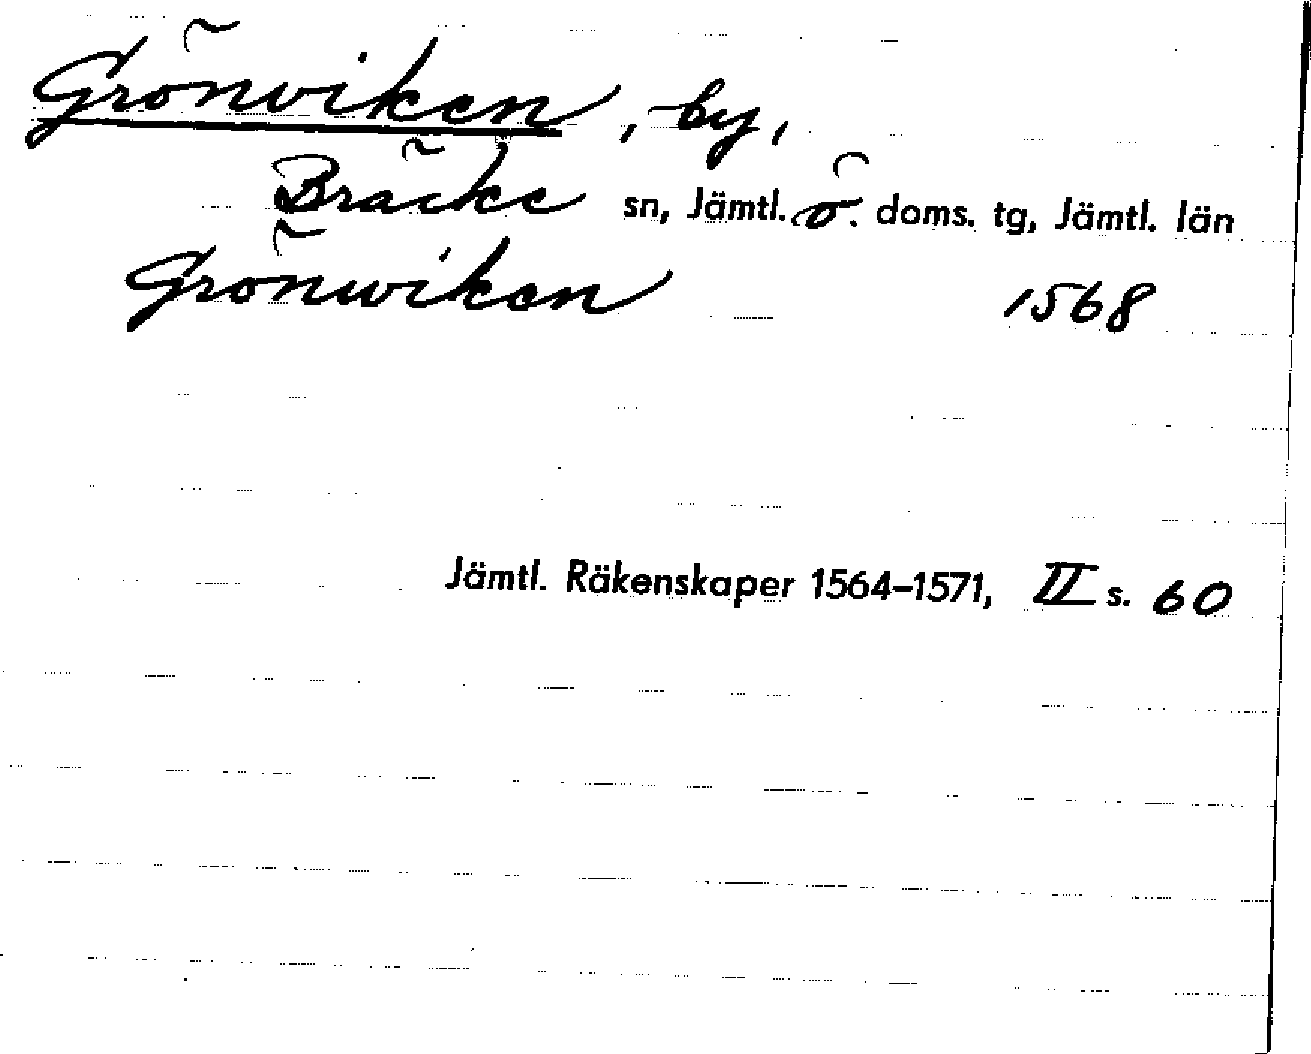 Grönviken, by,
Bräcke sn, Jämtl. ö. doms. tg, Jämtl. län
Grönwiken 1568
Jämtl. Räkenskaper 1564–1571, II s. 60